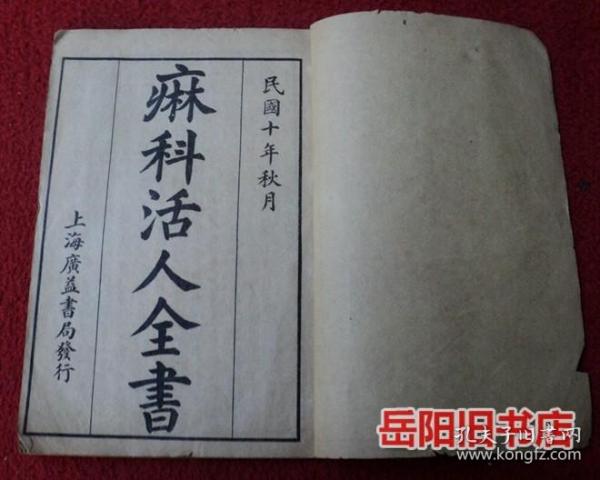 民國十年秋月
痳科活人全書
上海廣益書局發行
岳阳旧书店
孔夫子旧书网
www.kongfz.com